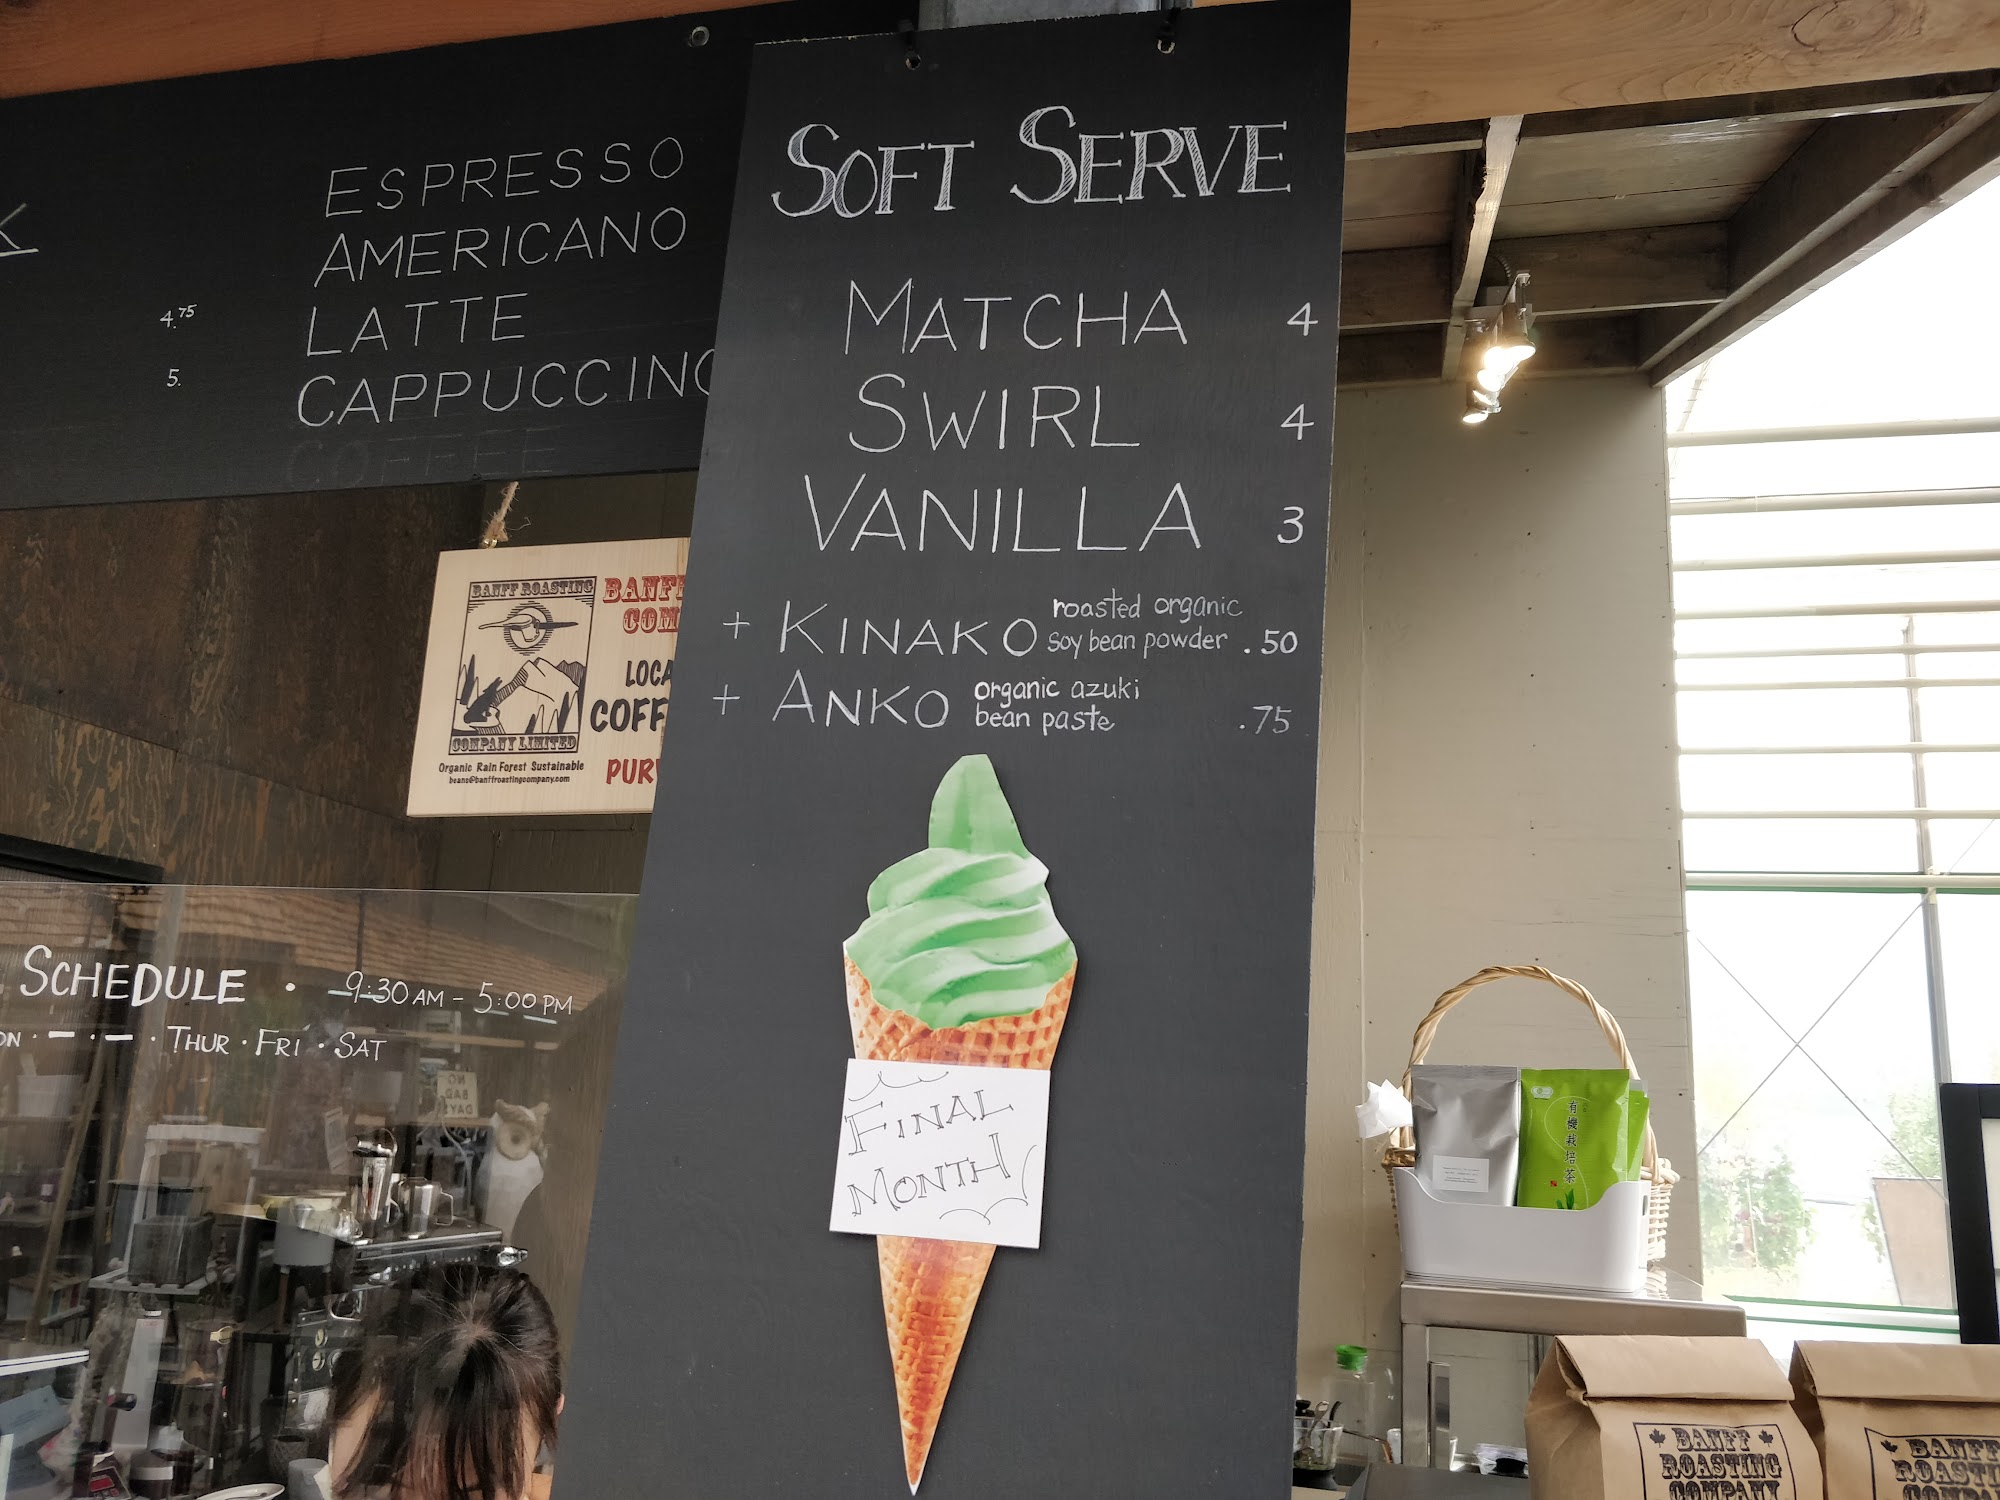 ESPRESSO
AMERICANO
4.75 LATTE
5. CAPPUCCINO
COFFEE
SOFT SERVE
MATCHA 4
SWIRL 4
VANILLA 3
+ KINAKO roasted organic soy bean powder .50
+ ANKO organic azuki bean paste .75
FINAL
MONTH
BANFF ROASTING
COMPANY LIMITED
Organic Rain Forest Sustainable
beans@banffroastingcompany.com
BANFF
COM
LOCA
COFF
PUR
SCHEDULE • 9:30 AM - 5:00 PM
ON • — • — • THUR • FRI • SAT
NO
BAD
DAYS
有機栽培茶
BANFF
ROASTING
COMPANY
BANFF
ROASTI
COMPA